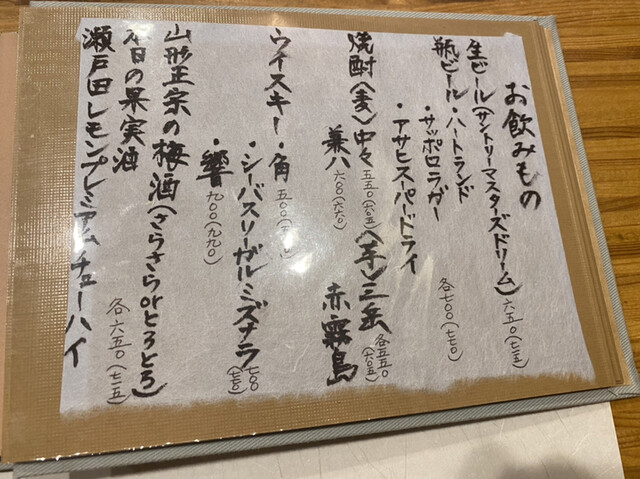 お飲みもの
生ビール(サントリーマスターズドリーム)六五〇(七一五)
瓶ビール・ハートランド
・サッポロラガー
・アサヒスーパードライ 各七〇〇(七七〇)
焼酎〈麦〉中々五五〇(六〇五)〈芋〉三岳
兼八六〇〇(六六〇) 赤霧島 各五五〇(六〇五)
ウイスキー・角 五〇〇
・シーバスリーガルミズナラ七〇〇(七七〇)
・響九〇〇(九九〇)
山形正宗の梅酒(さらさらorとろとろ)
本日の果実酒
瀬戸田レモンプレミアムチューハイ 各六五〇(七一五)